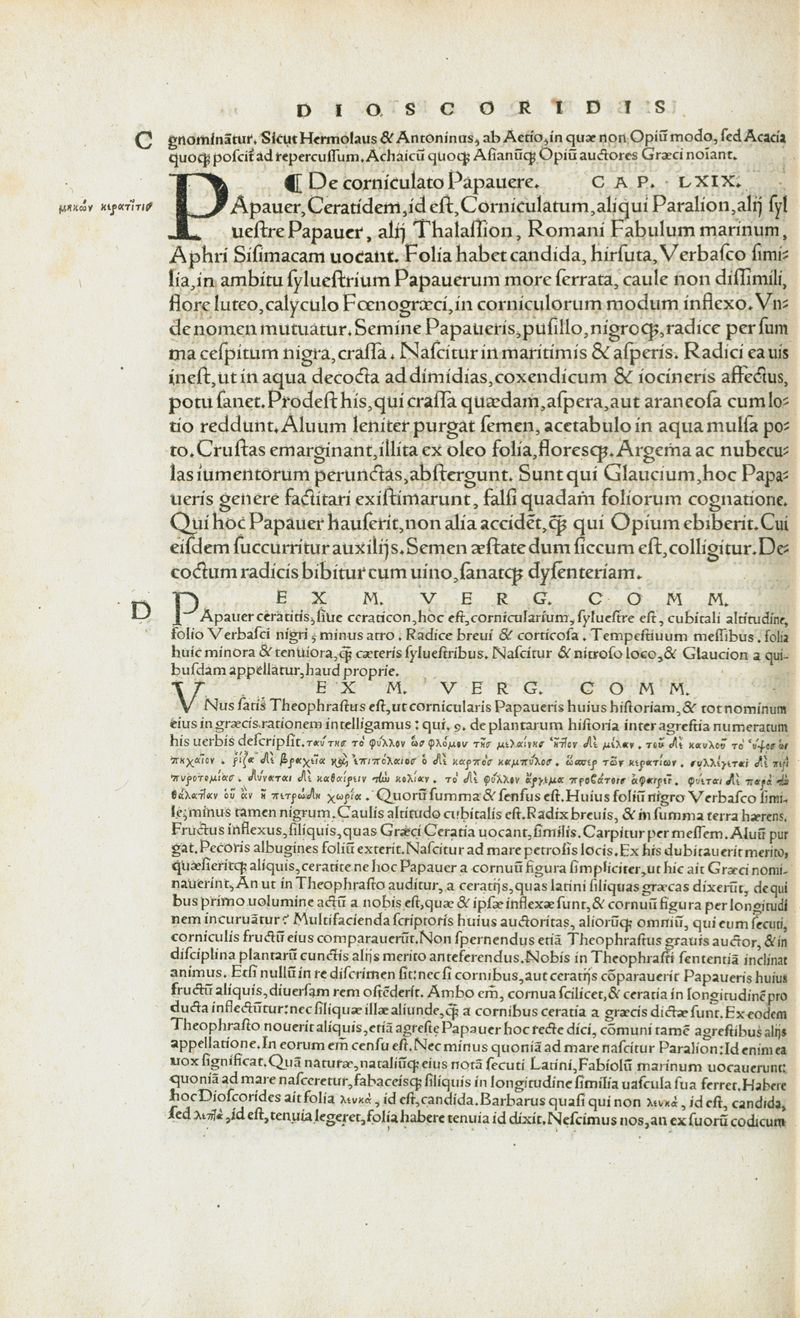 DIOSCORIDIS
C gnominãtur. Sicut Hermolaus & Antoninus, ab Aetio, in quæ non Opiũ modo, ſed Acacia
quoq; poſcit̃ ad repercuſſum. Achaicũ quoq; Aſianũq; Opiũ auctores Græci noĩant.
¶ De corniculato Papauere. CAP. LXIX.
μηκὼν κερατῖτις
PApauer, Ceratidem, id eſt, Corniculatum, aliqui Paralion, alij ſyl
ueſtre Papauer, alij Thalaſſion, Romani Fabulum marinum,
Aphri Siſimacam uocant. Folia habet candida, hirſuta, Verbaſco ſimi⸗
lia, in ambitu ſylueſtrium Papauerum more ſerrata, caule non diſſimili,
flore luteo, calyculo Fœnogræci, in corniculorum modum inflexo. Vn⸗
de nomen mutuatur. Semine Papaueris, puſillo, nigroq;, radice per ſum
ma ceſpitum nigra, craſſa. Naſcitur in maritimis & aſperis. Radici ea uis
ineſt, ut in aqua decocta ad dimidias, coxendicum & iocineris affectus,
potu ſanet. Prodeſt his, qui craſſa quædam, aſpera, aut araneoſa cum lo⸗
tio reddunt. Aluum leniter purgat ſemen, acetabulo in aqua mulſa po⸗
to. Cruſtas emarginant, illita ex oleo folia, floresq;. Argema ac nubecu⸗
las iumentorum perunctas, abſtergunt. Sunt qui Glaucium, hoc Papa⸗
ueris genere factitari exiſtimarunt, falſi quadam foliorum cognatione.
Qui hoc Papauer hauſerit, non alia accidẽt, q̃ȝ qui Opium ebiberit. Cui
eiſdem ſuccurritur auxilijs. Semen æſtate dum ſiccum eſt, colligitur. De⸗
coctum radicis bibitur cum uino, ſanatq; dyſenteriam.
EX M. VERG. COMM.
D PApauer ceratitis, ſiue ceraticon, hoc eſt, cornicularium, ſylueſtre eſt, cubitali altitudine,
folio Verbaſci nigri, minus atro. Radice breui & corticoſa. Tempeſtiuum meſſibus. folia
huic minora & tenuiora, q̃ȝ cæteris ſylueſtribus. Naſcitur & nitroſo loco, & Glaucion a qui⸗
buſdam appellatur, haud proprie.
EX M. VERG. COMM.
VNus ſatis Theophraſtus eſt, ut cornicularis Papaueris huius hiſtoriam, & tot nominum
eius in græcis rationem intelligamus: qui. 9. de plantarum hiſtoria inter agreſtia numeratum
his uerbis deſcripſit. ταύτης τὸ φύλλον ὡς φλόμου τῆς μελαίνης ἧττον δὲ μέλαν. τοῦ δὲ καυλοῦ τὸ ὕψος ὡς
πηχαῖον. ῥίζα δὲ βραχεῖα καὶ ἐπιπόλαιος ὁ δὲ καρπὸς καμπύλος. ὥσπερ τῶν κερατίων. συλλέγεται δὲ περὶ
πυροτομίας. δύναται δὲ καθαίρειν τὴν κοιλίαν. τὸ δὲ φύλλον ἄργεμα προβάτοις ἀφαιρεῖ. φύεται δὲ παρὰ τὴν
θάλατταν οὗ ἂν ᾖ πετρώδη χωρία. Quorũ ſumma & ſenſus eſt. Huius foliũ nigro Verbaſco ſimi⸗
le, minus tamen nigrum. Caulis altitudo cubitalis eſt. Radix breuis, & in ſumma terra hærens.
Fructus inflexus, ſiliquis, quas Græci Ceratia uocant, ſimilis. Carpitur per meſſem. Aluũ pur
gat. Pecoris albugines foliũ exterit. Naſcitur ad mare petroſis locis. Ex his dubitauerit merito,
quæſieritq; aliquis, ceratite ne hoc Papauer a cornuũ figura ſimpliciter, ut hic ait Græci nomi⸗
nauerint, An ut in Theophraſto auditur, a ceratijs, quas latini ſiliquas græcas dixerũt, de qui
bus primo uolumine actũ a nobis eſt, quæ & ipſæ inflexæ ſunt, & cornuũ figura per longitudi
nem incuruãtur? Multifacienda ſcriptoris huius auctoritas, aliorũq; omniũ, qui eum ſecuti,
corniculis fructũ eius comparauerũt. Non ſpernendus etiã Theophraſtus grauis auctor, & in
diſciplina plantarũ cunctis alijs merito anteferendus. Nobis in Theophraſti ſententiã inclinat
animus. Etſi nullũ in re diſcrimen ſit: nec ſi cornibus, aut ceratijs cõparauerit Papaueris huius
fructũ aliquis, diuerſam rem oſtẽderit. Ambo em̃, cornua ſcilicet, & ceratia in longitudinẽ pro
ducta inflectũtur: nec ſiliquæ illæ aliunde, q̃ȝ a cornibus ceratia a græcis dictæ ſunt. Ex eodem
Theophraſto nouerit aliquis, etiã agreſte Papauer hoc recte dici, cõmuni tamẽ agreſtibus alijs
appellatione. In eorum em̃ cenſu eſt. Nec minus quoniã ad mare naſcitur Paralion: Id enim ea
uox ſignificat. Quã naturæ, nataliũq; eius notã ſecuti Latini, Fabiolũ marinum uocauerunt:
quoniã ad mare naſceretur, fabaceisq; ſiliquis in longitudine ſimilia uaſcula ſua ferret. Habere
hoc Dioſcorides ait folia λευκὰ, id eſt, candida. Barbarus quaſi qui non λευκὰ, id eſt, candida,
ſed λεπτὰ, id eſt, tenuia legeret, folia habere tenuia id dixit. Neſcimus nos, an ex ſuorũ codicum